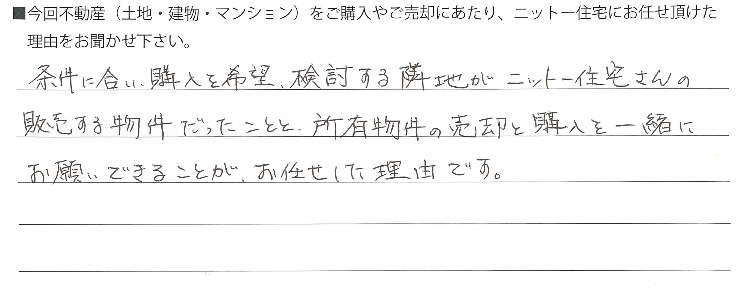 ■今回不動産（土地・建物・マンション）をご購入やご売却にあたり、ニットー住宅にお任せ頂けた
理由をお聞かせ下さい。
条件に合い、購入を希望、検討する隣地がニットー住宅さんの
販売する物件だったことと、所有物件の売却と購入を一緒に
お願いできることが、お任せした理由です。